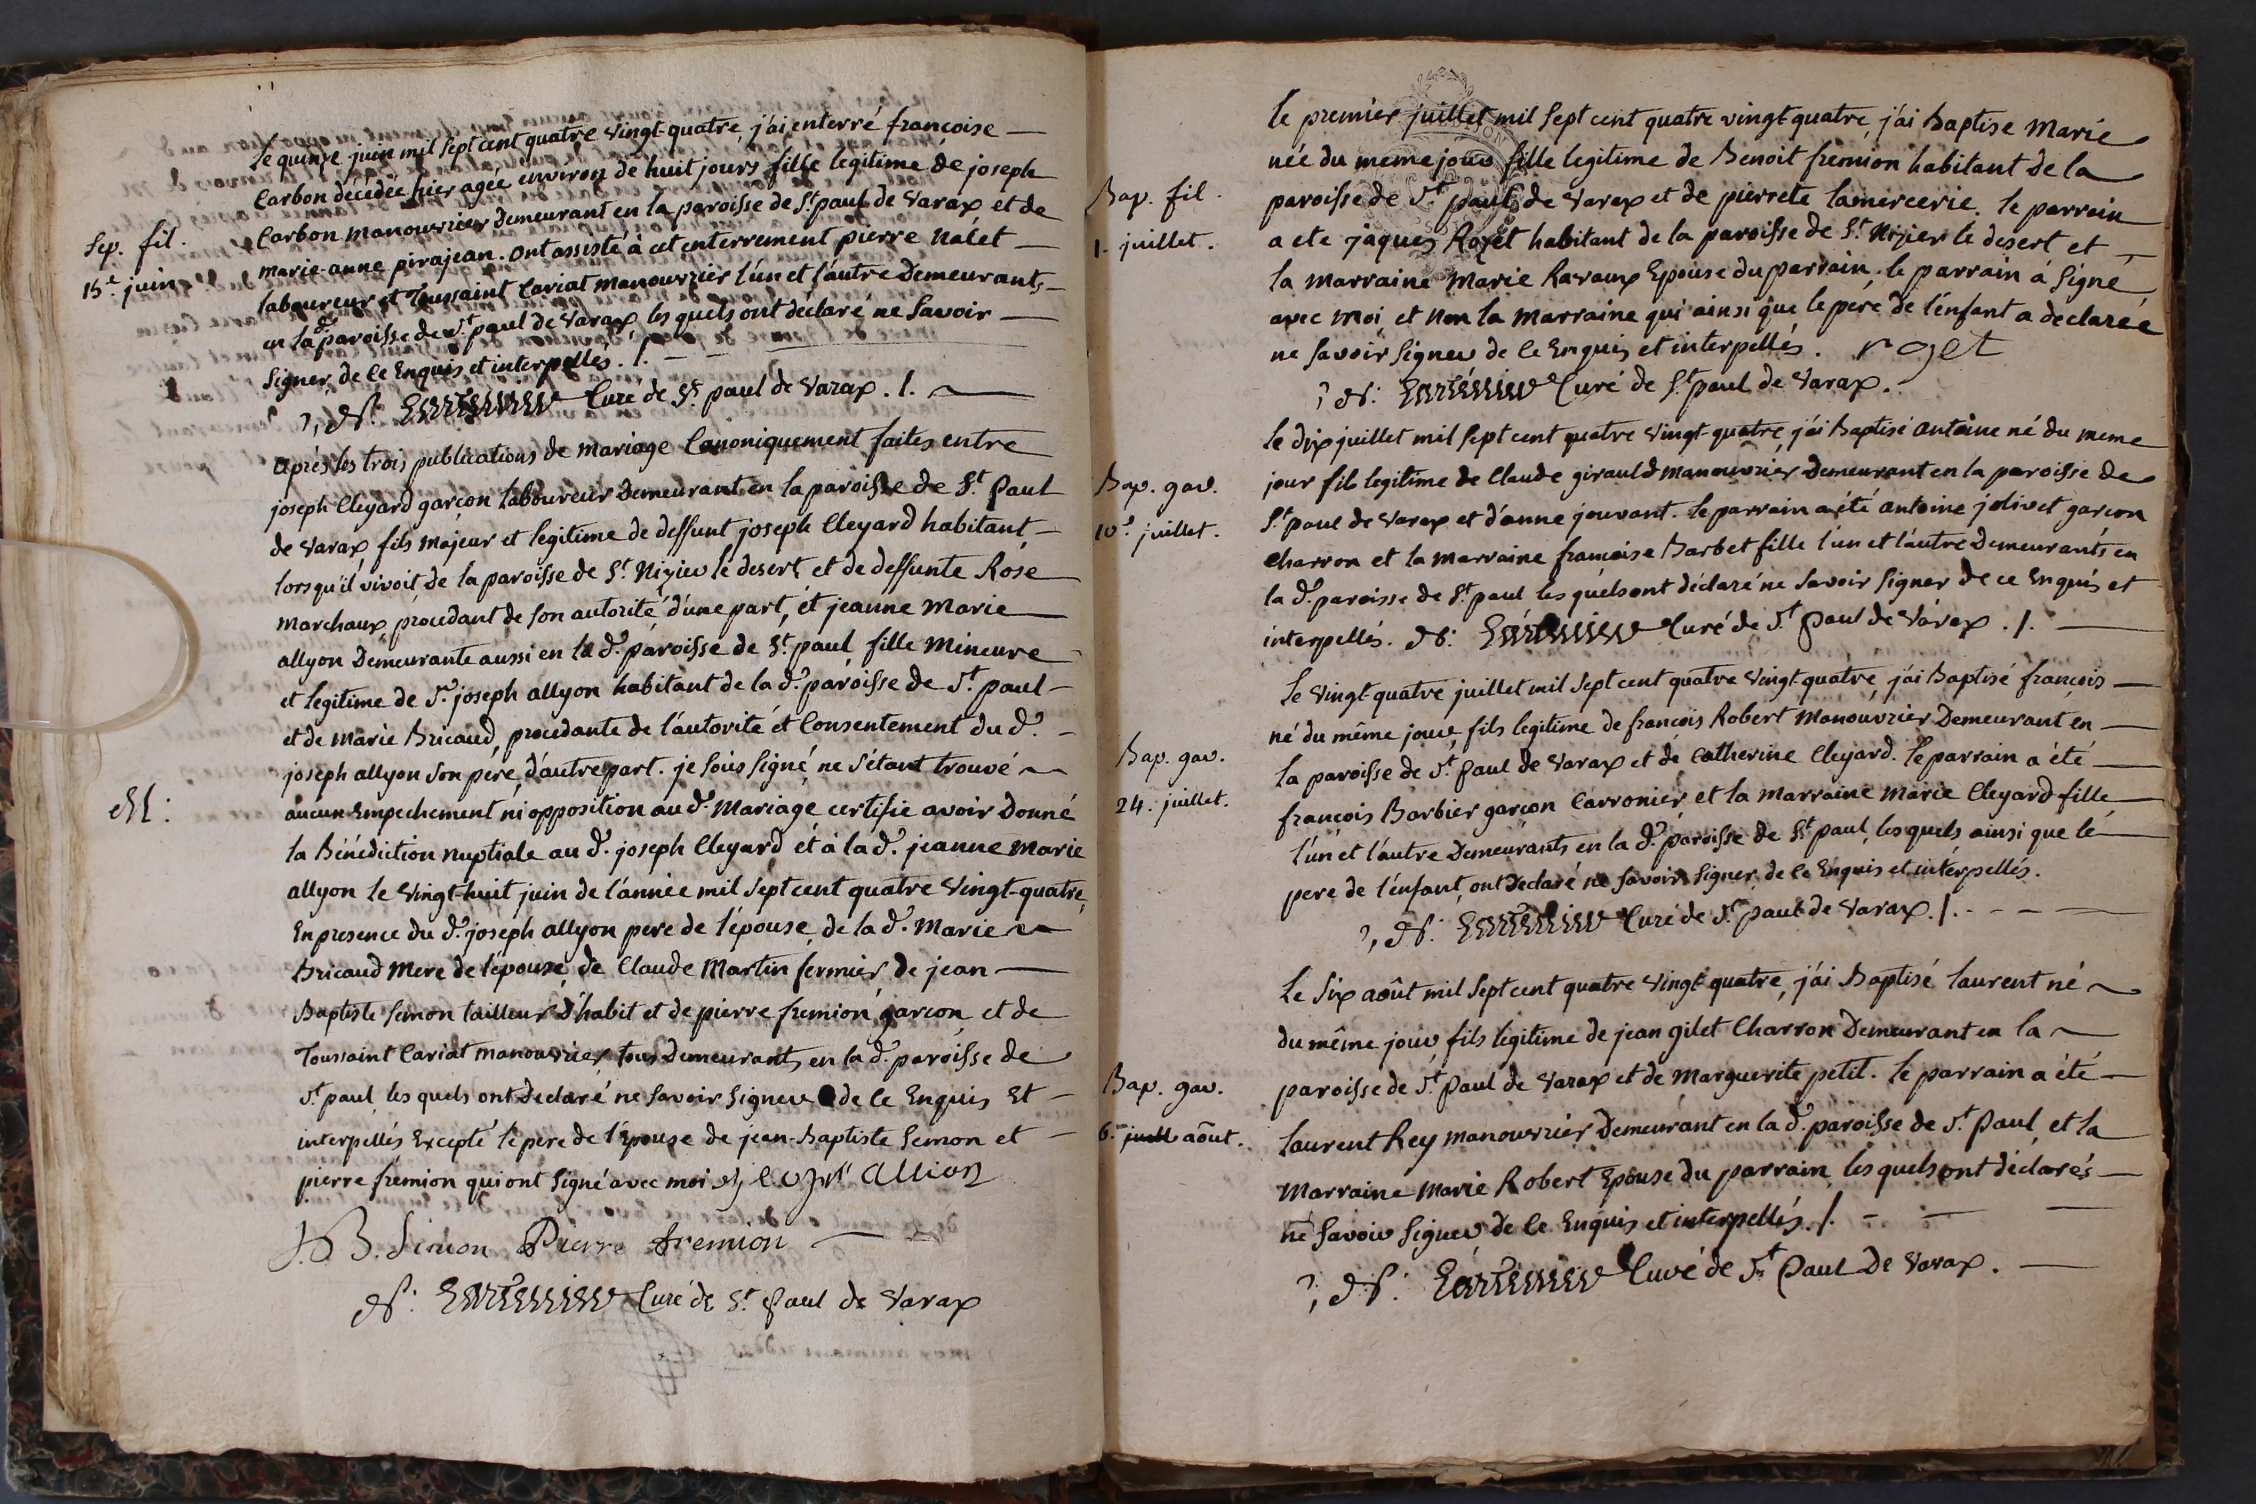 Sep. fil.
15e juin
Le quinze juin mil sept cent quatre vingt-quatre, j'ai enterré françoise
Carbon décédée hier agée environ de huit jours fille legitime de joseph
Carbon manouvrier Demeurant en la paroisse de St. paul de Varax et de
marie-anne pirajean. Ont assisté à cet enterrement pierre Nalet
laboureur et Toussaint Cariat manouvrier l'un et l'autre Demeurants
en la de paroisse de St. paul de Varax, les quels ont déclaré ne savoir
signer, de ce Enquis et interpellés. /.
Curé de St. paul de Varax. /.
M:
Après les trois publications de mariage Canoniquement faites entre
joseph Cleyard garçon laboureur Demeurant en la paroisse de St. Paul
de Varax fils majeur et legitime de deffunt joseph Cleyard habitant
lorsqu'il vivoit de la paroisse de St. Nizier le desert et de deffunte Rose
marchaux procedant de son autorité, d'une part, et jeanne Marie
allyon Demeurante aussi en la de. paroisse de St. paul fille Mineure
et legitime de Sr. joseph allyon habitant de la de. paroisse de St. paul
et de Marie Bricaud, procedante de l'autorité et Consentement du d.
joseph allyon son pere, d'autre part. je sous signé, ne s'étant trouvé
aucun Empechement ni opposition au d. Mariage certifie avoir Donné
la Bénédiction nuptiale au d. joseph Cleyard et à la de. jeanne Marie
allyon le Vingt-huit juin de l'année mil sept cent quatre Vingt-quatre,
En presence du d. joseph allyon pere de l'épouse, de la de. Marie
Bricaud Mere de l'épouse, de Claude Martin fermier, de jean
Baptiste Semon tailleur d'habit et de pierre fremion garcon, et de
Toussaint Cariat manouvrier, tous Demeurants en la de. paroisse de
St. paul, les quels ont Declaré ne savoir signer de ce Enquis Et
interpellés Excepté le pere de l'Epouse de jean-Baptiste Semon et
pierre fremion qui ont signé avec moi allion
J. B. Simon Pierre fremion
Curé de St. Paul de Varax
Bap. fil.
1. juillet.
le premier juillet mil sept cent quatre vingt-quatre, j'ai Baptise Marie
née du meme jour fille legitime de Benoit fremion habitant de la
paroisse de St. paul de Varax et de pierrete lamercerie. le parrain
a ete jaques Royet habitant de la paroisse de St. Nizier le desert et
la marraine Marie Ravoux Epouse du parrain. le parrain a signé
avec moi, et non la Marraine qui ainsi que le pere de l'enfant a declarée
ne savoir signer de ce Enquis et interpellés. roget
Curé de St. paul de Varax.
Bap. gar.
10e. juillet.
le dix juillet mil sept cent quatre vingt-quatre, j'ai Baptisé antoine né du meme
jour fils legitime de Claude girauld manouvrier Demeurant en la paroisse de
St. paul de Varax et d'anne jouvant. le parrain a été antoine jolivet garcon
charron et la marraine francoise Barbet fille l'un et l'autre Demeurants en
la de. paroisse de St. paul les quels ont déclaré ne savoir signer de ce Enquis et
interpellés. Curé de St. Paul de Varax. /.
Bap. gar.
24. juillet.
Le Vingt-quatre juillet mil sept cent quatre Vingt-quatre, j'ai Baptisé françois
né du même jour fils legitime de francois Robert Manouvrier Demeurant en
la paroisse de St. Paul de Varax et de Catherine Cleyard. le parrain a été
françois Barbier garcon Carronier, et la marraine Marie Cleyard fille
l'un et l'autre Demeurants en la de. paroisse de St. paul, les quels ainsi que le
pere de l'enfant, ont Declaré ne savoir signer, de ce Enquis et interpellés.
Curé de St. paul de Varax. /.
Bap. gar.
6. juill aôut.
Le Six aôut mil sept cent quatre Vingt-quatre, j'ai Baptisé laurent né
du même jour fils legitime de jean gilet Charron Demeurant en la
paroisse de St. Paul de Varax et de Marguerite petit. le parrain a été
laurent Rey manouvrier Demeurant en la de. paroisse de St. Paul, et la
Marraine Marie Robert Epouse du parrain, les quels ont déclarés
ne savoir signer de ce Enquis et interpellés. /.
Curé de St. Paul De Varax.